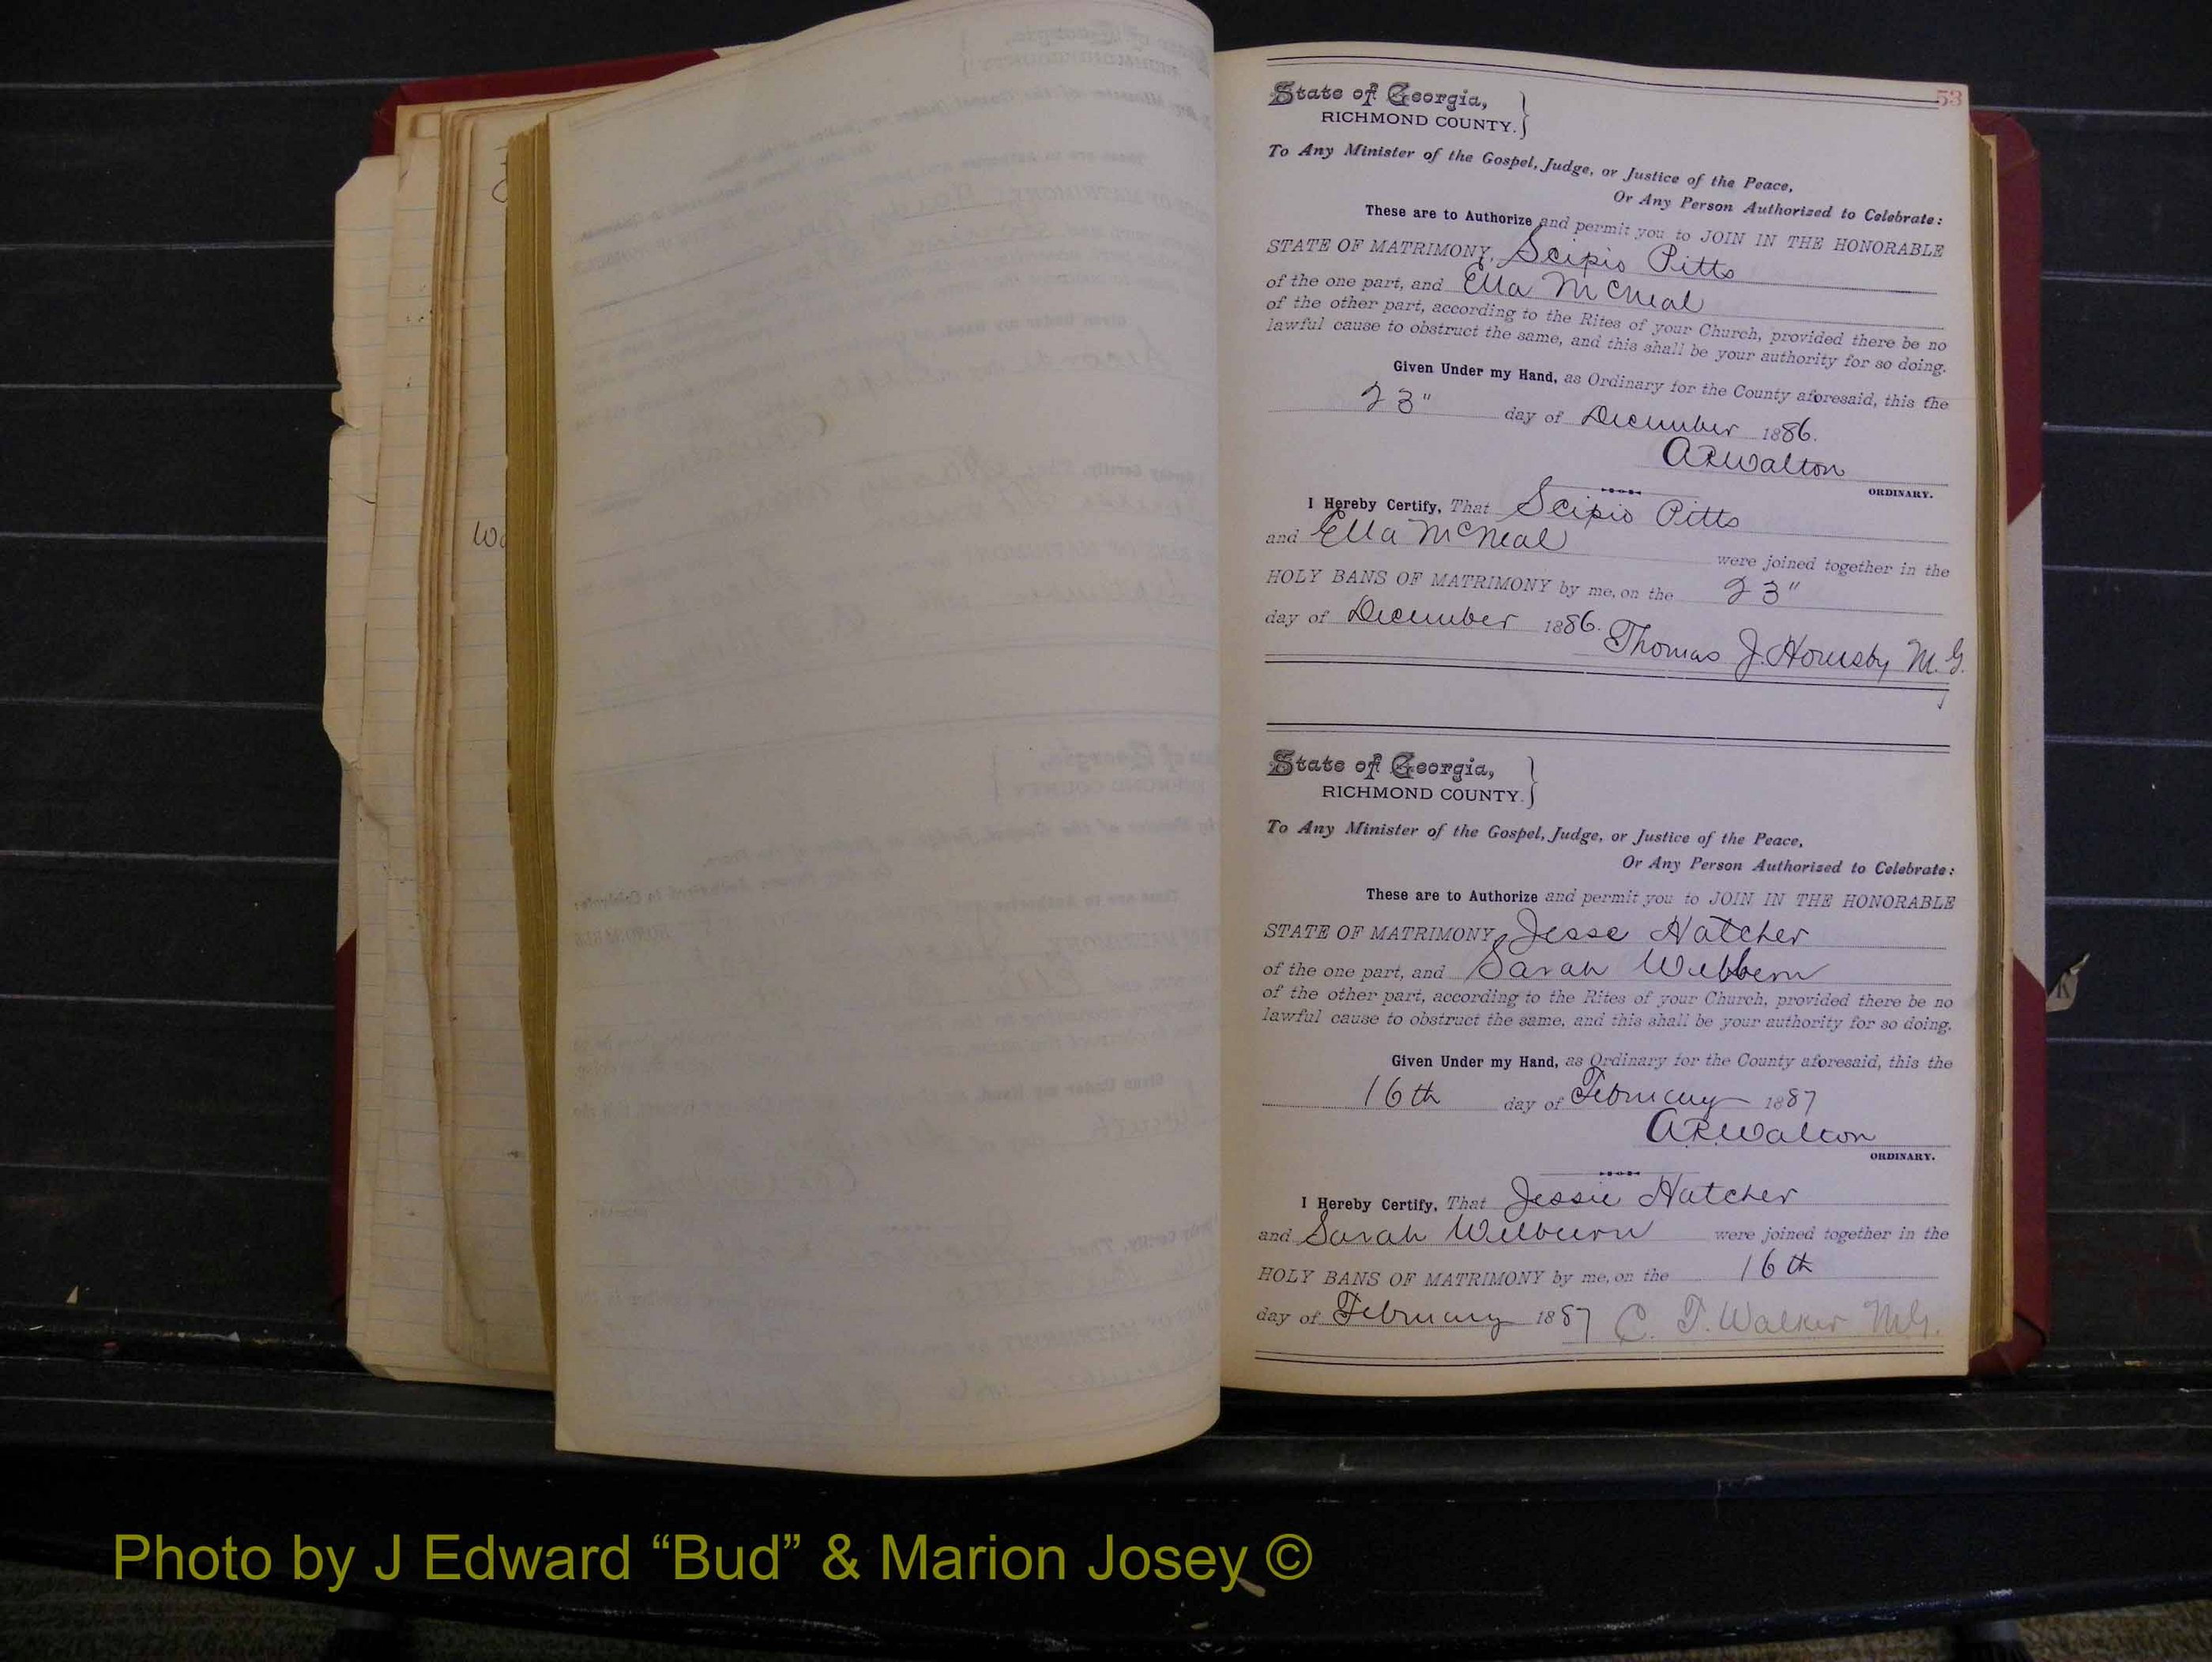 53
State of Georgia,
RICHMOND COUNTY.
To Any Minister of the Gospel, Judge, or Justice of the Peace,
Or Any Person Authorized to Celebrate:
These are to Authorize and permit you to JOIN IN THE HONORABLE
STATE OF MATRIMONY, Scipio Pitts
of the one part, and Ella McNeal
of the other part, according to the Rites of your Church, provided there be no
lawful cause to obstruct the same, and this shall be your authority for so doing.
Given Under my Hand, as Ordinary for the County aforesaid, this the
23" day of December 1886.
A R Walton
ORDINARY.
I Hereby Certify, That Scipio Pitts
and Ella McNeal were joined together in the
HOLY BANS OF MATRIMONY by me, on the 23"
day of December 1886. Thomas J. Hornsby M.G.
State of Georgia,
RICHMOND COUNTY.
To Any Minister of the Gospel, Judge, or Justice of the Peace,
Or Any Person Authorized to Celebrate:
These are to Authorize and permit you to JOIN IN THE HONORABLE
STATE OF MATRIMONY, Jesse Hatcher
of the one part, and Sarah Webbern
of the other part, according to the Rites of your Church, provided there be no
lawful cause to obstruct the same, and this shall be your authority for so doing.
Given Under my Hand, as Ordinary for the County aforesaid, this the
16th day of February 1887
A R Walton
ORDINARY.
I Hereby Certify, That Jessie Hatcher
and Sarah Wilburn were joined together in the
HOLY BANS OF MATRIMONY by me, on the 16th
day of February 1887 C. T. Walker M.G.
Photo by J Edward “Bud” & Marion Josey ©